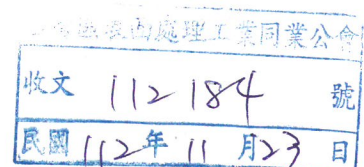 表面處理工業同業公會
收文 112184 號
民國 112 年 11 月 23 日